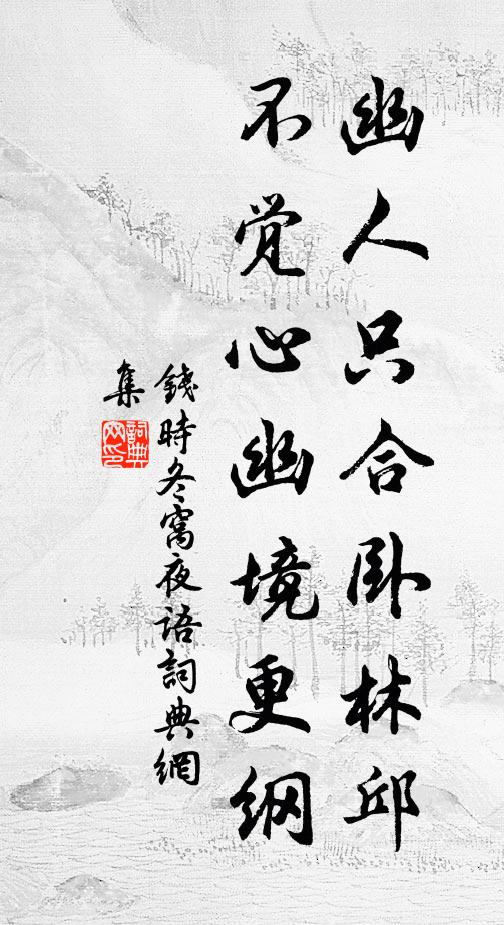 幽人只合卧林邱
不觉心幽境更纲
錢時冬窩夜语詞典網
集
詞典网印